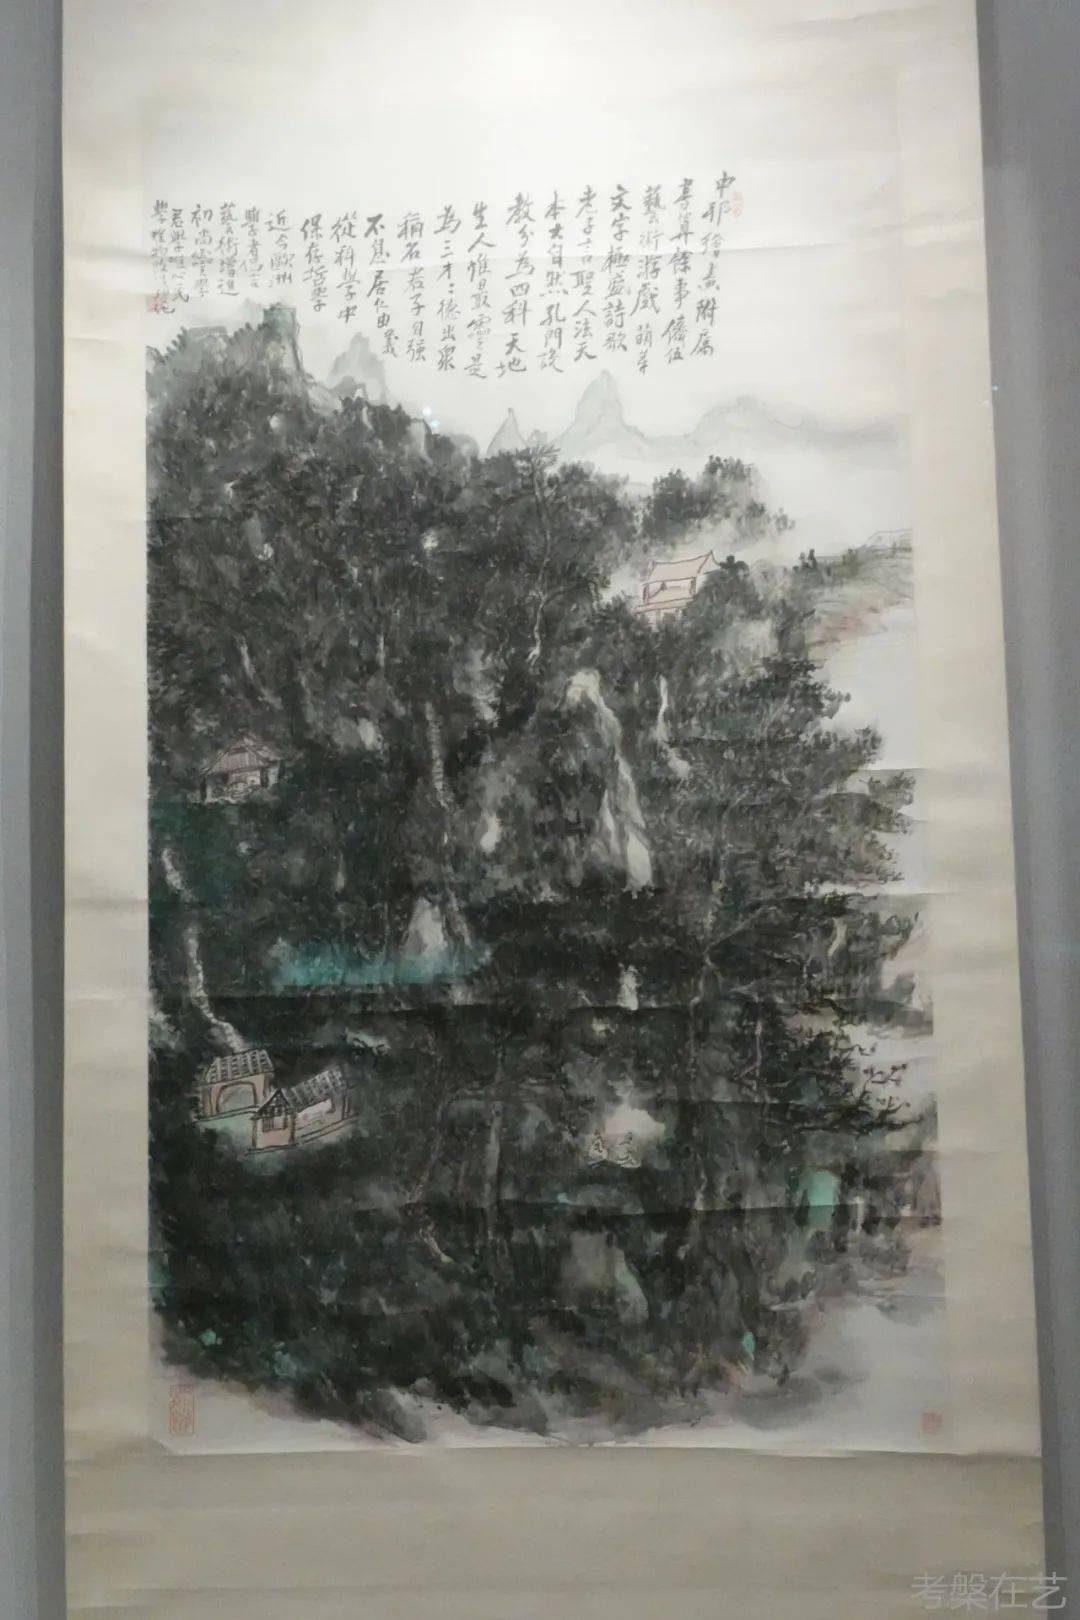 中邦繪畫附屬
書算餘事儕伍
藝術游戲萌芽
文字極盛詩歌
老子言聖人法天
本大自然孔門設
教分為四科天地
生人惟最靈是
為三才才德出眾
稱石君子自強
不息居仁由義
從科學中
保存哲學
近今歐洲
學者
藝術增進
初尚靈學
君學唯心民
學唯物
考槃在艺